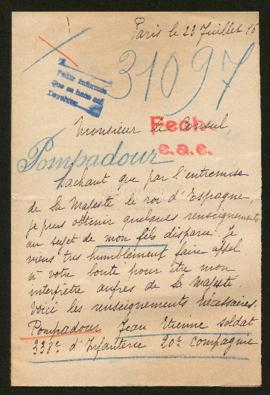 Paris le 23 Juillet 16
31097
Pedir informe
Que se hace así
Monsieur le Consul,
Fecho
e.a.e.
Pompadour
Sachant que par l'entremise
de Sa Majesté le roi d'Espagne,
je peus obtenir quelques renseignements
au sujet de mon fils disparu. Je
viens très humblement faire appel
à votre bonté pour être mon
interprète auprès de Sa Majesté
Voici les renseignements nécéssaires.
Pompadour Jean Etienne soldat
338e d'Infanterie 20e Compagnie